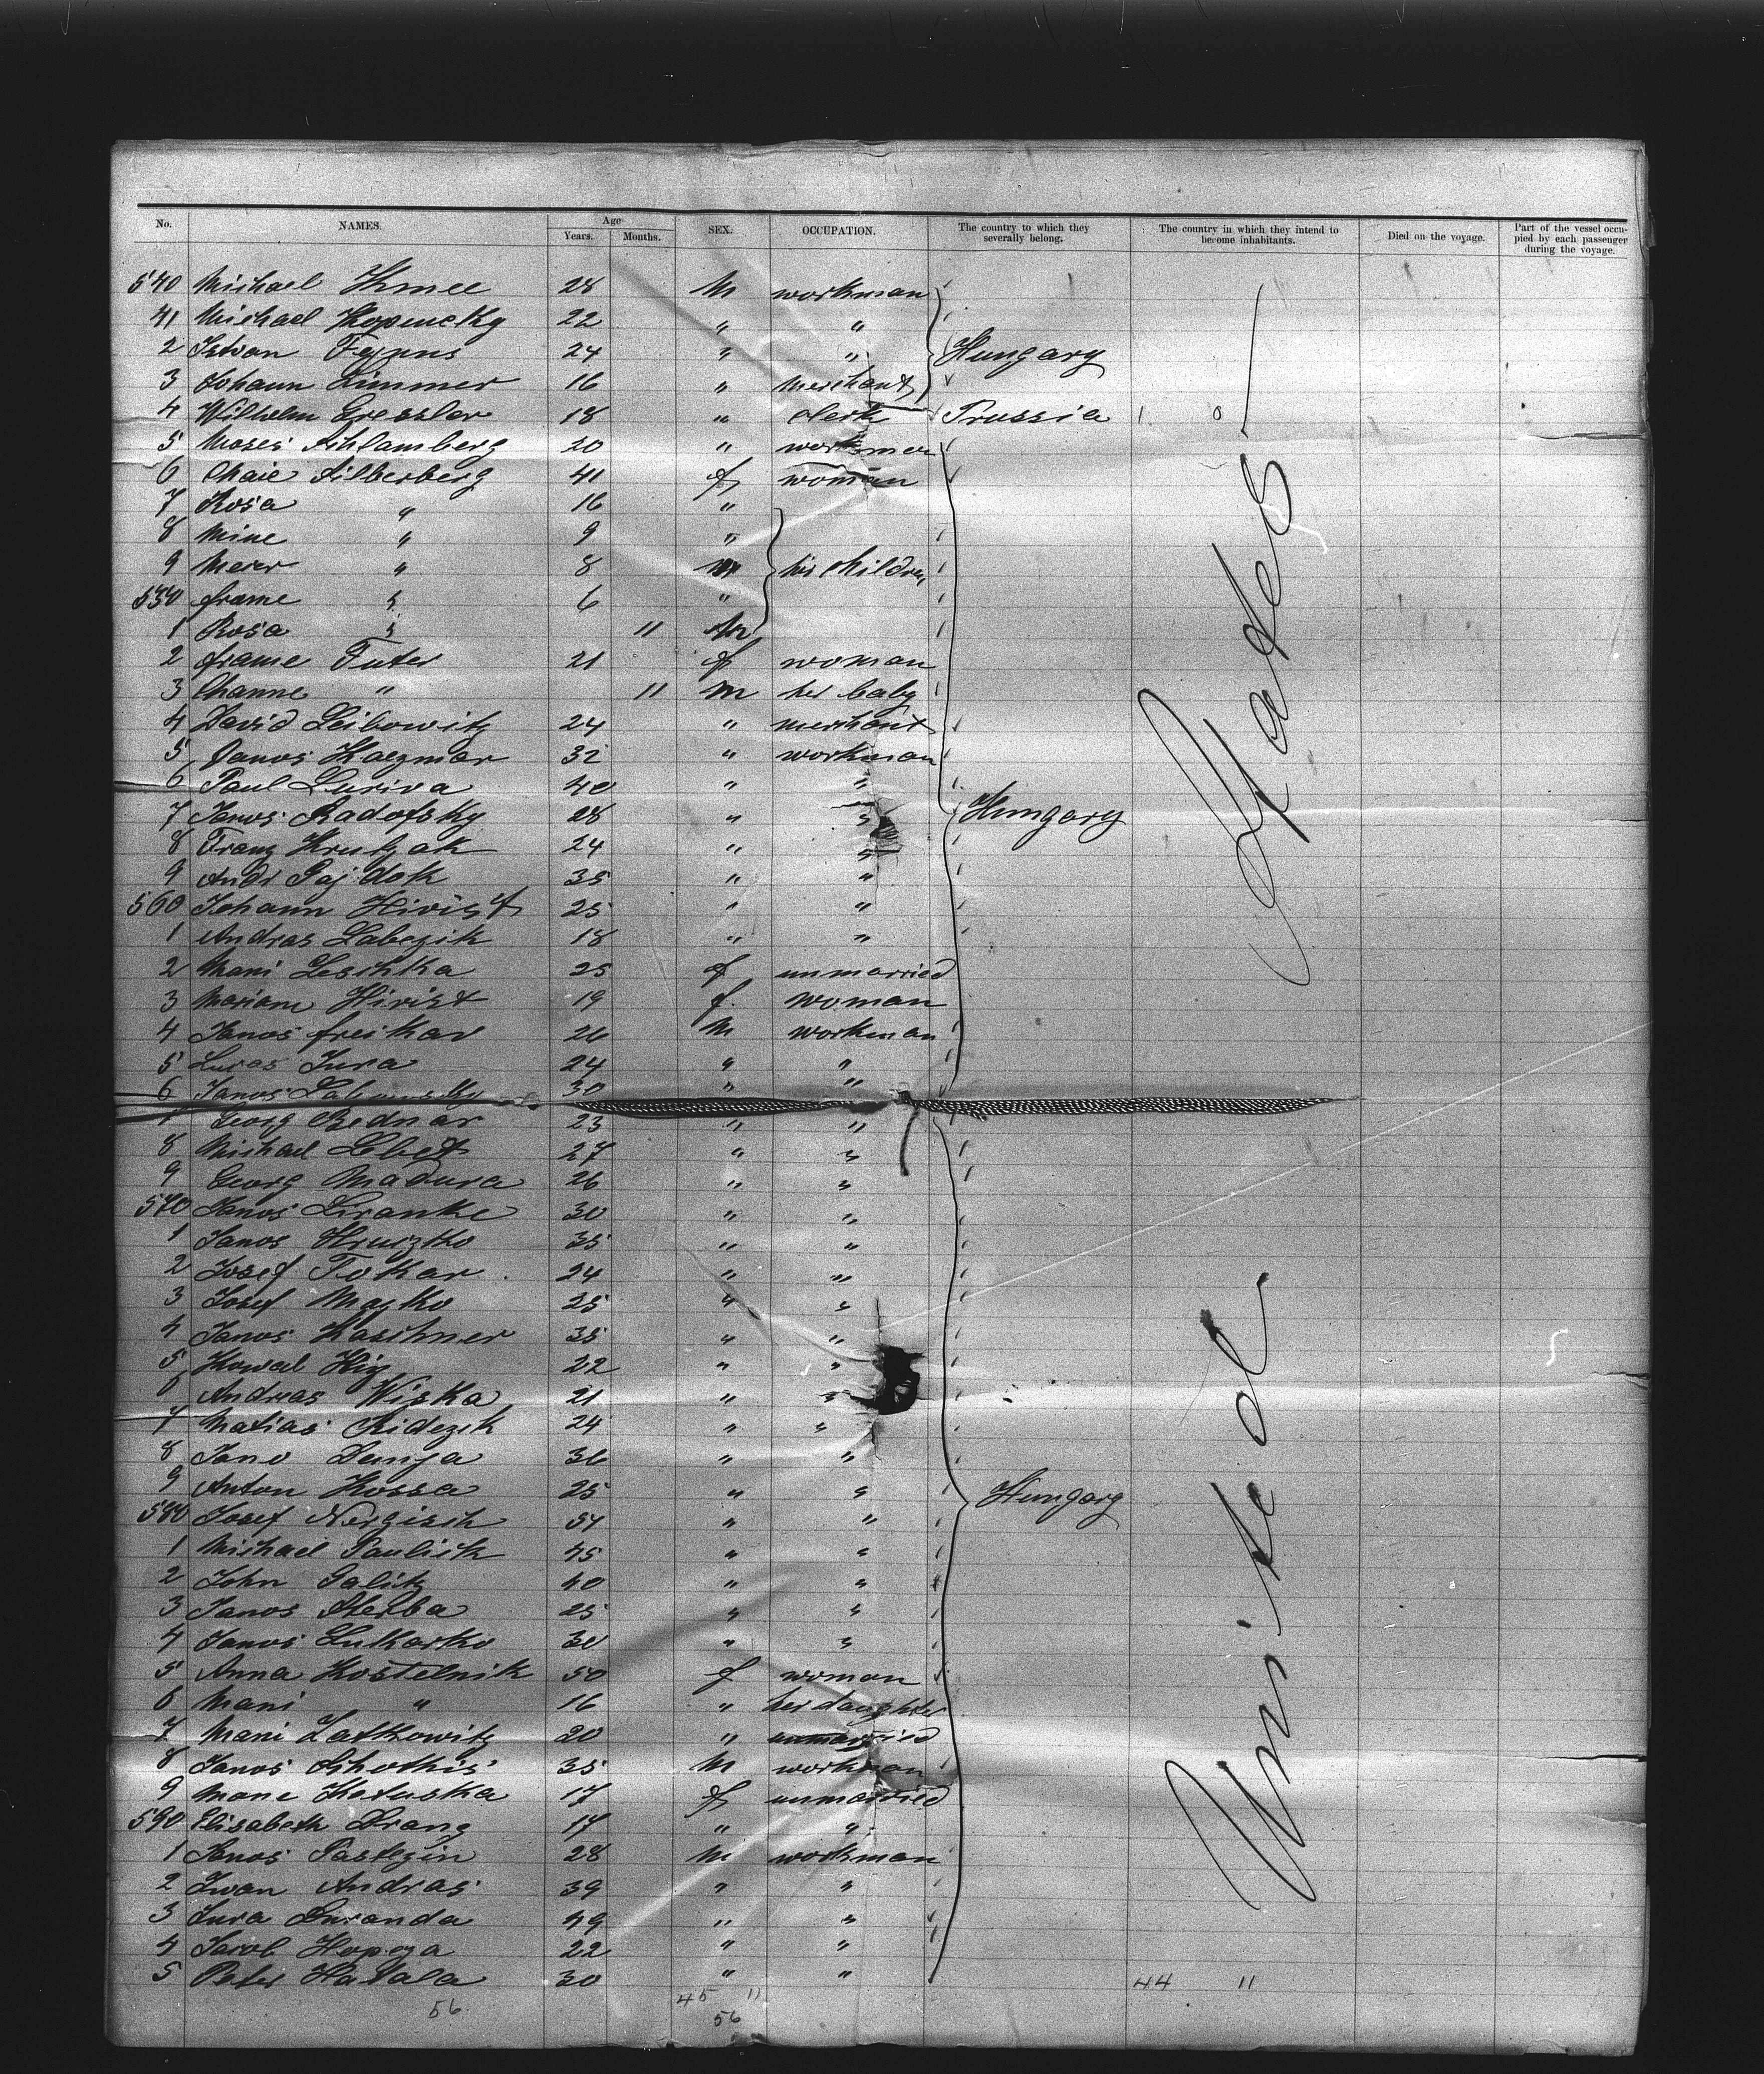 No. NAMES. Age Years. Months. SEX. OCCUPATION. The country to which they severally belong. The country in which they intend to become inhabitants. Died on the voyage. Part of the vessel occupied by each passenger during the voyage.
540 Michael Kmec 28 M workman
41 Michael Kopencky 22 " "
2 Istvan 24 " " Hungary
3 Johann Zimmer 16 " merchant
4 Wilhelm Gressler 18 " clerk Prussia 1 0
5 Moses Schlamberg 20 " workmen
6 Chaie Silberberg 41 f woman
7 Rosa " 16 "
8 Mine " 9 "
9 Meier " 8 M his children
550 frame " 6 "
1 Rosa " 11
2 frame Futer 21 f woman
3 Channe " 11 M her baby
4 David Leibowitz 24 " merchant
5 Janos Kaczmar 32 " workman
6 Paul Luriva 40 " "
7 Janos Radofsky 28 " " Hungary
8 Franz Krutzak 24 " "
9 Andr Gajdok 35 " "
560 Johann Hivist 25 " "
1 Andras Labezik 18 " "
2 Mani Leschka 25 f unmarried
3 Mariam Hirist 19 f. woman
4 Janos freikar 26 M workman
5 Lucas Jura 24 " "
6 Janos 30 " "
7 Georg Bednar 23 " "
8 Michael Lebet 27 " "
9 Georg Madura 26 " "
570 Janos Liranke 30 " "
1 Janos Hruszko 35 " "
2 Josef Tokar 24 " "
3 Josef Macko 25 " "
4 Janos Kaschner 35 " "
5 Kowal Kig 22 " "
6 Andreas Wiska 21 " "
7 Matias Ridezik 24 " "
8 Jano Dunja 36 " "
9 Anton Kossa 25 " " Hungary
580 Josef Nergisch 54 " "
1 Michael Paulick 45 " "
2 John Galitz 40 " "
3 Janos Sterba 25 " "
4 Janos Lukasko 30 " "
5 Anna Kostelnik 50 f woman
6 Mani " 16 " her daughter
7 Mani Latkowitz 20 " unmarried
8 Janos 35 M workman
9 Mane Katuska 17 f unmarried
590 Elisabeth Drang 17 " "
1 Janos Pastezin 28 M workman
2 Iwan Andras 39 " "
3 Jura Duranda 49 " "
4 Jacob Hopeza 22 " "
5 Peter Hatala 30 " "
56 45 11 44 11
56
United States